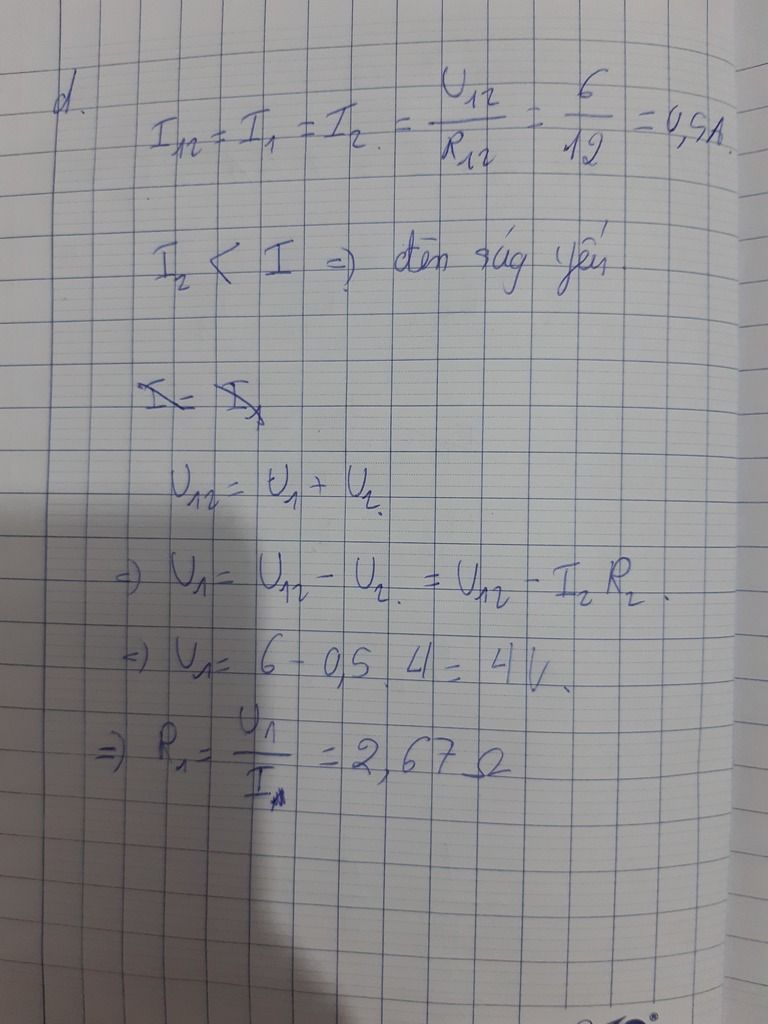 d.
I₁₂ = I₁ = I₂. = U₁₂/R₁₂ = 6/12 = 0,5A.
I₂ < I => đèn ság yếu.
I = I₁
U₁₂ = U₁ + U₂.
=> U₁ = U₁₂ - U₂. = U₁₂ - I₂ R₂.
=> U₁ = 6 - 0,5.4 = 4V.
=> R₁ = U₁/I₁ = 2,67 Ω